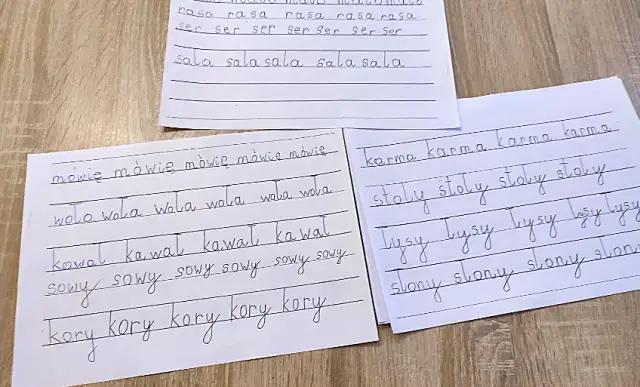 rasa rasa rasa rasa rasa
ser ser ser ser ser ser ser
sala sala sala sala sala
mówię mówię mówię mówię mówię
wola wola wola wola wola wola
kawał kawał kawał kawał
sowy sowy sowy sowy sowy sowy
kory kory kory kory kory
karma karma karma karma
stoły stoły stoły stoły
łysy łysy łysy łysy łysy
słony słony słony słony